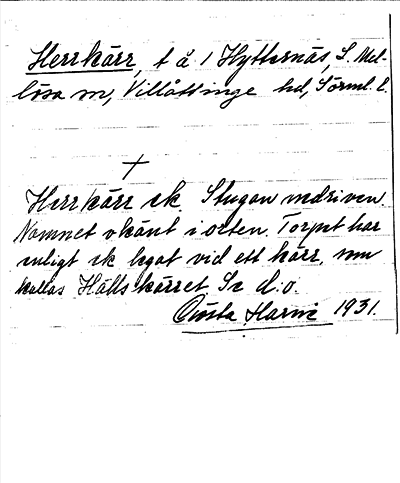 Herrkärr, t å 1 Hytternäs, S. Mel-
lösa sn, Villåttinge hd, Sörml. l.
+
Herrkärr ek. Stugan nedriven.
Namnet okänt i orten. Torpet har
enligt ek legat vid ett kärr, som
kallas Hälls kärret. Se d. o.
Gösta Harvi 1931.